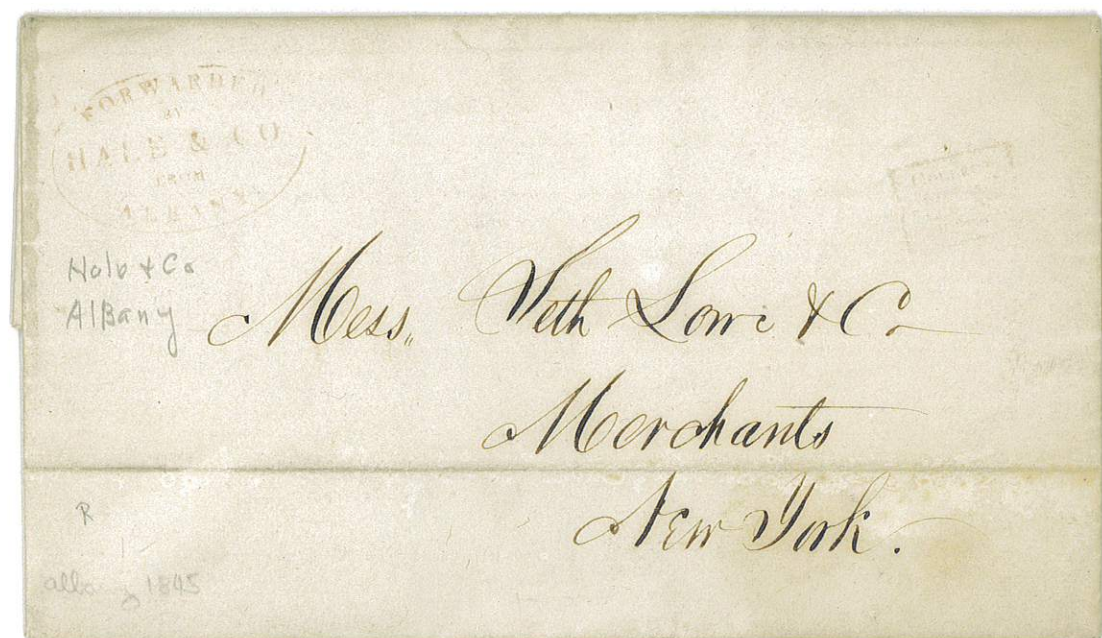 FORWARDED
BY
HALE & CO
FROM
ALBANY
COLLECT
Hale & Co
Albany
Mess. Seth Low & Co
Merchants
New York.
R
albany 1845